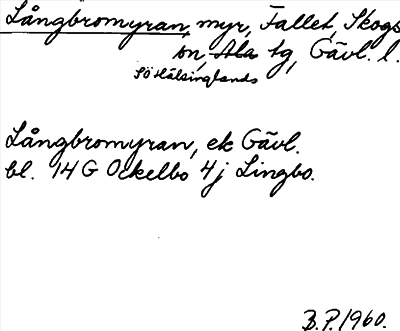 Långbromyran, myr, Fallet, Skogs
sn, Ala tg, Gävl. l.
Sö Hälsinglands
Långbromyran, ek Gävl.
bl. 14 G Ockelbo 4j Lingbo.
B.P. 1960.